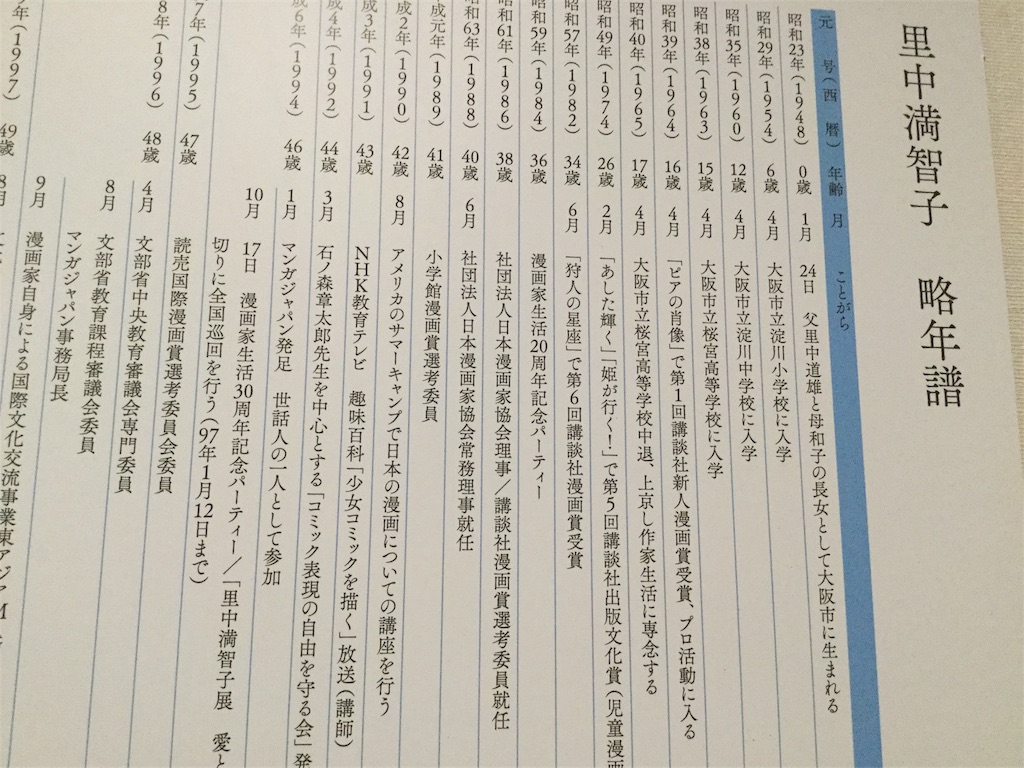 里中満智子　略年譜
元　号（西　暦）　年齢　月　ことがら
昭和23年（1948）　0歳　1月　24日　父里中道雄と母和子の長女として大阪市に生まれる
昭和29年（1954）　6歳　4月　大阪市立淀川小学校に入学
昭和35年（1960）　12歳　4月　大阪市立淀川中学校に入学
昭和38年（1963）　15歳　4月　大阪市立桜宮高等学校に入学
昭和39年（1964）　16歳　4月　「ピアの肖像」で第1回講談社新人漫画賞受賞、プロ活動に入る
昭和40年（1965）　17歳　4月　大阪市立桜宮高等学校中退、上京し作家生活に専念する
昭和49年（1974）　26歳　2月　「あした輝く」「姫が行く！」で第5回講談社出版文化賞（児童漫画
昭和57年（1982）　34歳　6月　「狩人の星座」で第6回講談社漫画賞受賞
昭和59年（1984）　36歳　漫画家生活20周年記念パーティー
昭和61年（1986）　38歳　社団法人日本漫画家協会理事／講談社漫画賞選考委員就任
昭和63年（1988）　40歳　6月　社団法人日本漫画家協会常務理事就任
成元年（1989）　41歳　小学館漫画賞選考委員
成2年（1990）　42歳　8月　アメリカのサマーキャンプで日本の漫画についての講座を行う
成3年（1991）　43歳　NHK教育テレビ　趣味百科「少女コミックを描く」放送（講師）
成4年（1992）　44歳　3月　石ノ森章太郎先生を中心とする「コミック表現の自由を守る会」発
成6年（1994）　46歳　1月　マンガジャパン発足　世話人の一人として参加
10月　17日　漫画家生活30周年記念パーティー／「里中満智子展　愛と
切りに全国巡回を行う（97年1月12日まで）
7年（1995）　47歳　読売国際漫画賞選考委員会委員
8年（1996）　48歳　4月　文部省中央教育審議会専門委員
8月　文部省教育課程審議会委員
マンガジャパン事務局長
9月　漫画家自身による国際文化交流事業東アジアM
年（1997）　49歳　8月